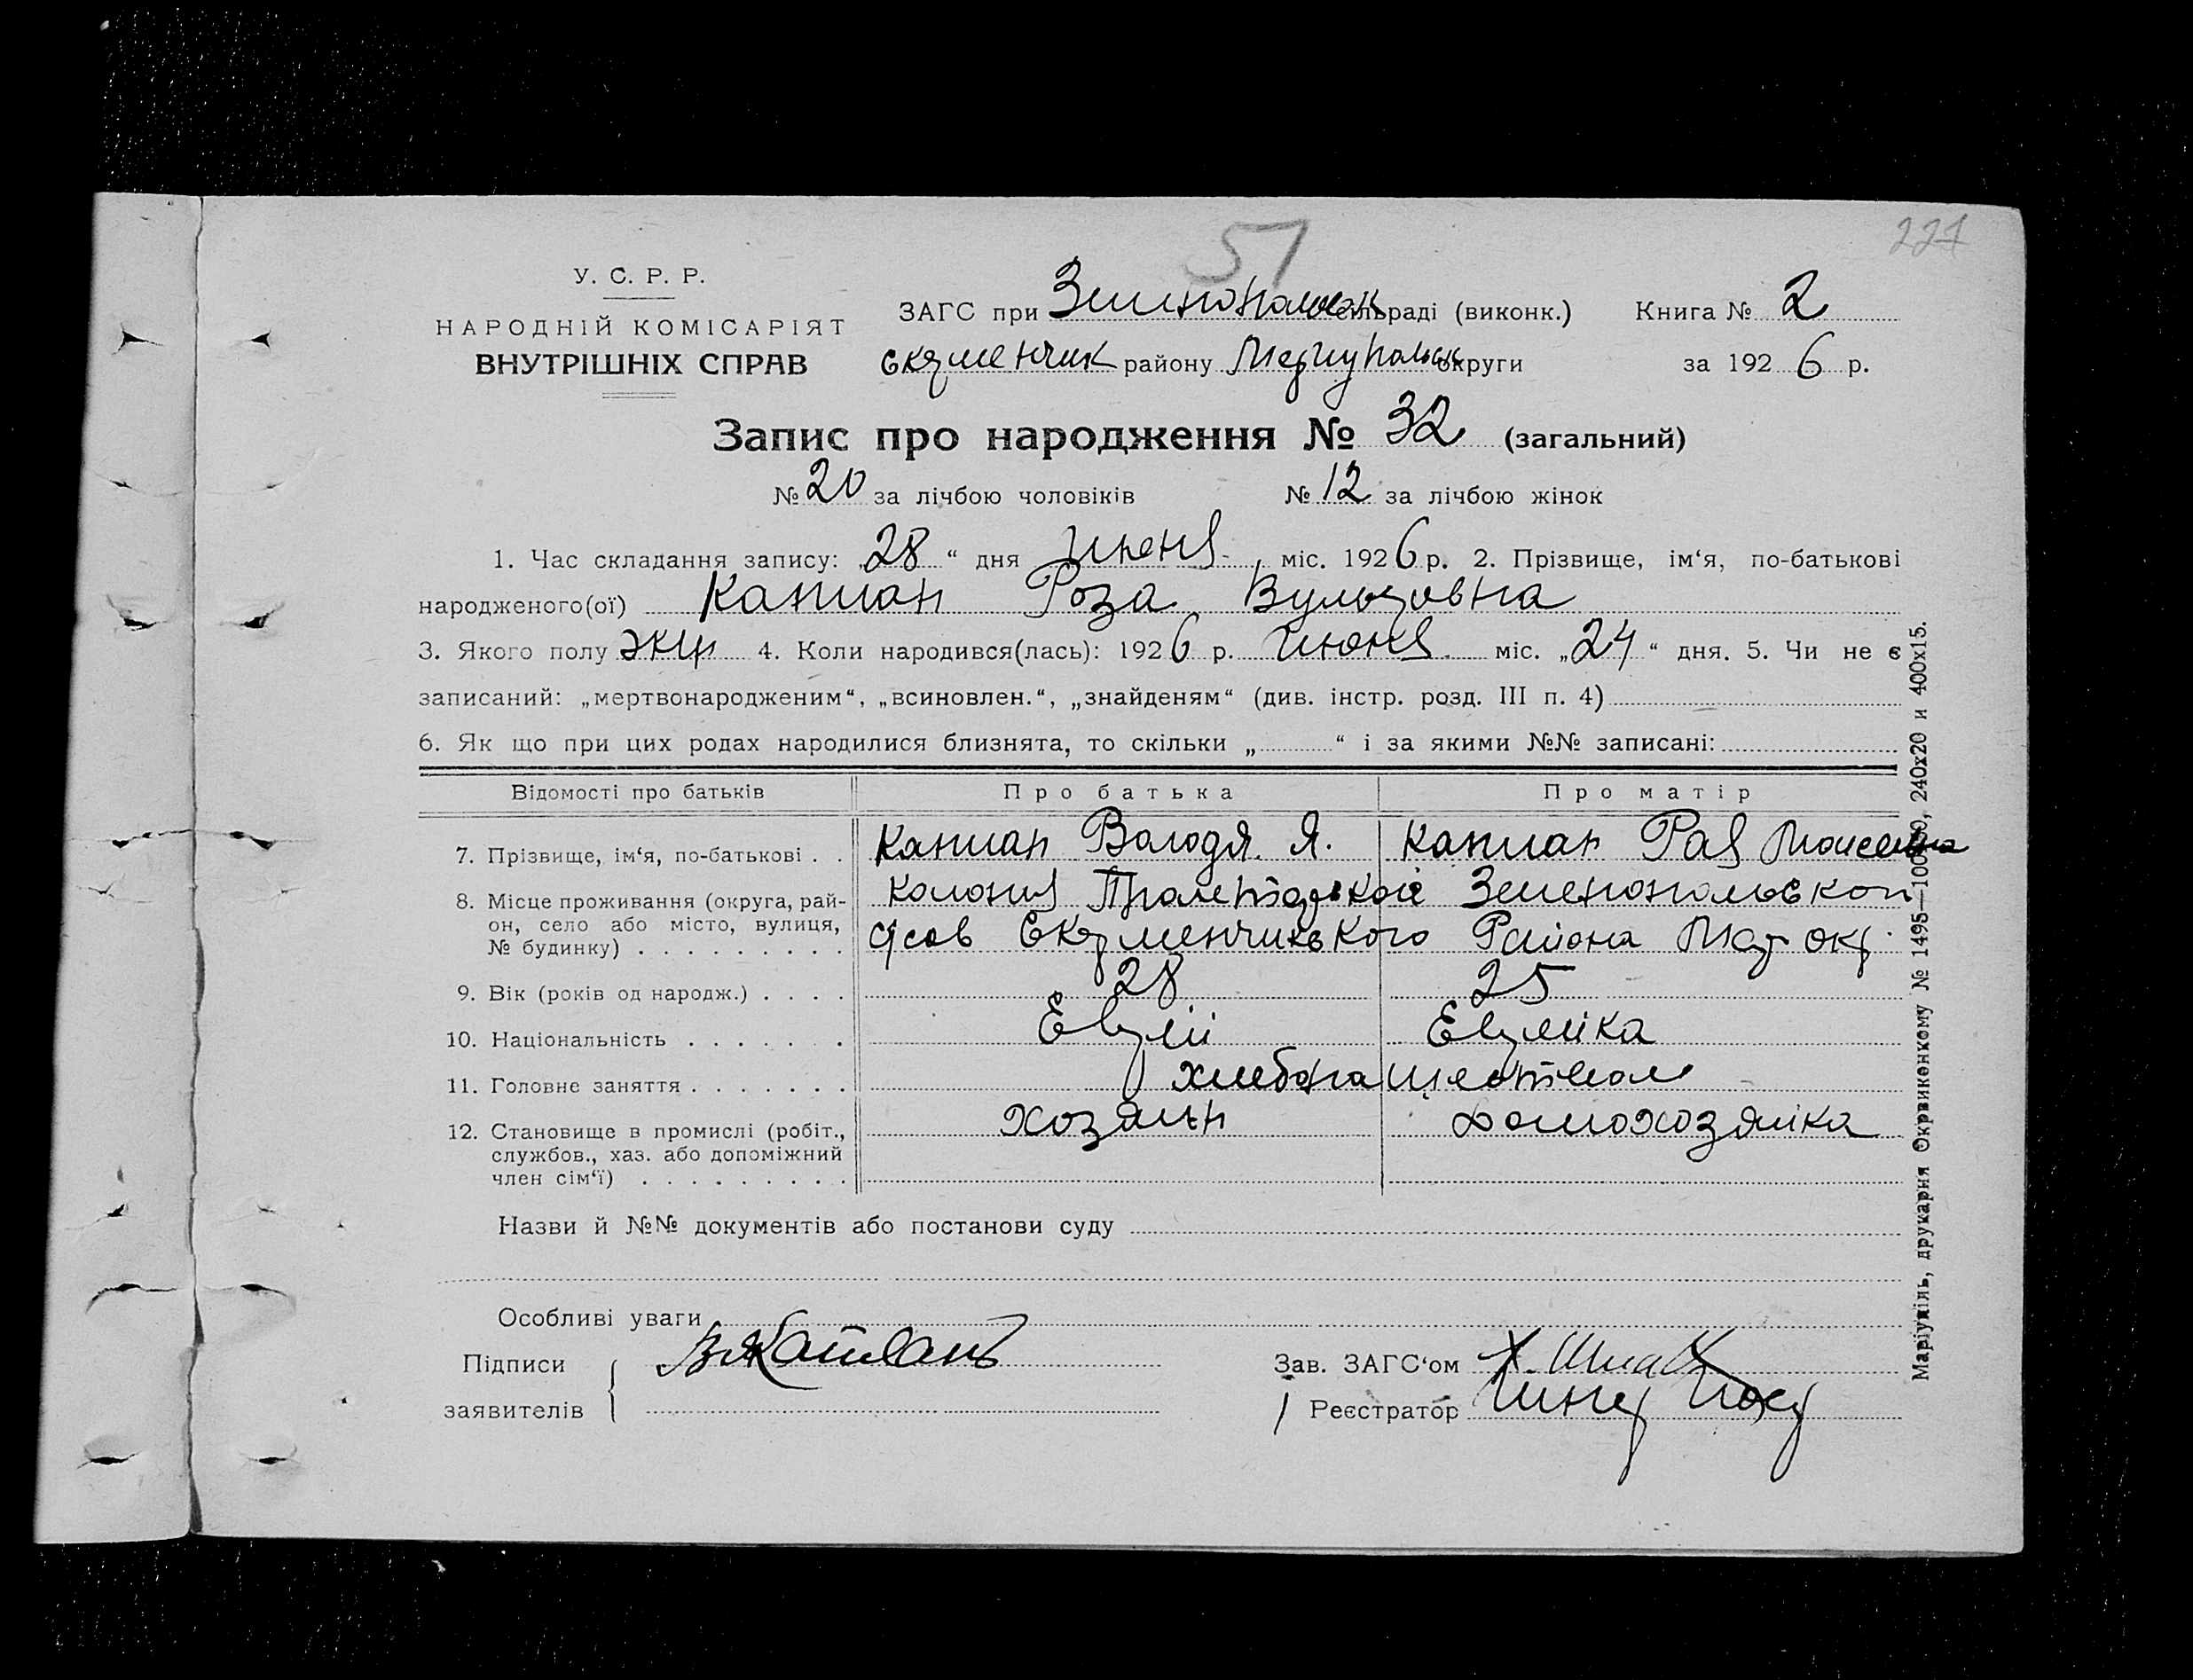 57
227
У. С. Р. Р.
НАРОДНІЙ КОМІСАРІЯТ
ВНУТРІШНІХ СПРАВ
ЗАГС при Зеленопольск сільраді (виконк.)
Книга № 2
району округи
за 1926 р.
Запис про народження № 32 (загальний)
№ 20 за лічбою чоловіків № 12 за лічбою жінок
1. Час складання запису: „28“ дня июня міс. 1926 р. 2. Прізвище, ім‘я, по-батькові
народженого(ої) Каплан Роза Вульфовна
3. Якого полу жін 4. Коли народився(лась): 1926 р. июня міс. „24“ дня. 5. Чи не є
записаний: „мертвонародженим“, „всиновлен.“, „знайденям“ (див. інстр. розд. III п. 4)
6. Як що при цих родах народилися близнята, то скільки „ “ і за якими №№ записані:
Відомості про батьків Про батька Про матір
7. Прізвище, ім‘я, по-батькові . . Каплан Володя Я. Каплан Рая Моисеевна
8. Місце проживання (округа, рай- Колония Зеленопольской
он, село або місто, вулиця, Района
№ будинку) . . . . . . . . .
9. Вік (років од народж.) . . . . 28 25
10. Національність . . . . . . . Еврій Еврейка
11. Головне заняття . . . . . . . хлебопашеством
12. Становище в промислі (робіт., хозяин домохозяйка
службов., хаз. або допоміжний
член сім‘ї) . . . . . . . . .
Назви й №№ документів або постанови суду
Особливі уваги
Підписи В Я Каплан
заявителів
Зав. ЗАГС‘ом
Реєстратор
Маріупіль, друкарня Окрвиконкому № 1495—10000, 240х20 и 400х15.